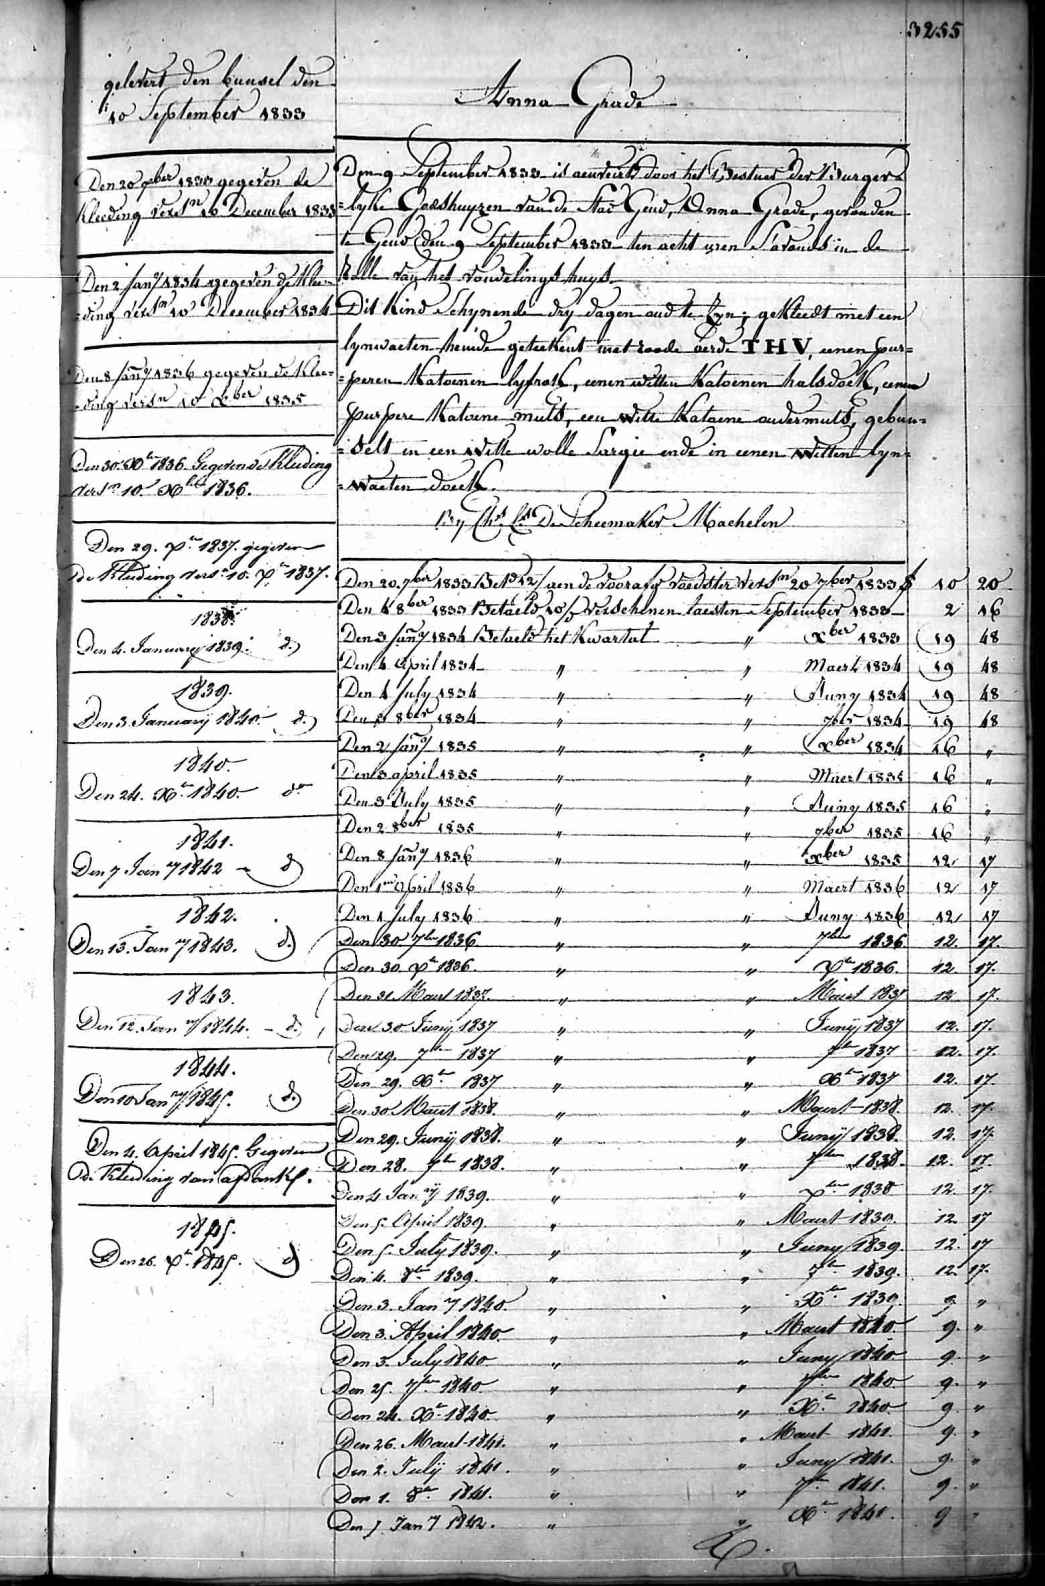 3255
gelevert den bunsel den
10 September 1833
Den 20 9ber 1833 gegeven de
kleeding versn 10 December 1833
Den 2 Jany 1834 gegeven de klee-
=ding versn 10 December 1834
Den 8 Jany 1836 gegeven de klee-
=ding versn 10 Xber 1835
Den 30 Xbr 1836 Gegeven de kleeding
versn 10 Xber 1836.
Den 29. Xr 1837. gegeven
De kleeding versn 10. Xr 1837.
1838.
Den 4. January 1839. d.)
1839.
Den 3. January 1840. d.)
1840.
Den 24. Xr 1840. do
1841.
Den 7 Jany 1842 d)
1842.
Den 13. Jany 1843. d.)
1843.
Den 12. Jany 1844. d.
1844.
Den 10 Jany 1845. d.)
Den 4. April 1845. Gegeven
De kleeding van
1845.
Den 26. Xr 1845. d)
Anna Grade
Den 9 September 1833 is aenveirdt door het Bestuer der Burger=
=lyke Godshuyzen van de Stad Gend, Anna Grade, gevonden
te Gend den 9 September 1833 ten acht uren S'avonds in de
Rolle van het vondelingshuys.
Dit kind Schynende dry dagen oud te Zyn; gekleedt met een
lynwaeten hemde geteekent met roode verde THV, eenen pur=
=peren Katoenen lyfrok, eenen witten Katoenen halsdoek, eene
purpere Katoene muts, een witte Katoene ondermuts, gebun=
=delt in een witte wolle Sargie ende in eenen Witten lyn=
=waeten doeck.
By Chs Ls De Scheemaker Machelen
Den 20. 7ber 1833 Bet aen de voorafg voedster versn 20 7ber 1833 f 10 20
Den 1 8ber 1833 Betaeld verschenen laesten September 1833 2 16
Den 3 Jany 1834 Betaeld het Kwartal " Xber 1833 19 48
Den 4 April 1834 " " Maert 1834 19 48
Den 4 July 1834 " " Juny 1834 19 48
Den 3 8ber 1834 " " 7ber 1834 19 48
Den 2 Jany 1835 " " Xber 1834 16 "
Den 3 april 1835 " " Maert 1835 16 "
Den 3 July 1835 " " Juny 1835 16 "
Den 2 8ber 1835 " " 7ber 1835 16 "
Den 8 Jany 1836 " " Xber 1835 12 17
Den 1 April 1836 " " Maert 1836 12 17
Den 1 July 1836 " " Juny 1836 12 17
Den 30 7ber 1836 " " 7ber 1836 12. 17.
Den 30. Xr 1836. " " Xr 1836. 12. 17.
Den 31 Maert 1837. " " Maert 1837 12 17.
Den 30 Juny 1837 " " Juny 1837 12. 17.
Den 29. 7br 1837 " " 7br 1837 12. 17.
Den 29. Xr 1837 " " Xr 1837 12. 17.
Den 30 Maert 1838. " " Maert 1838 12. 17.
Den 29. Juny 1838. " " Juny 1838. 12. 17.
Den 28. 7br 1838. " " 7br 1838. 12. 17.
Den 4 Jany 1839. " " Xbr 1838 12. 17.
Den 5. April 1839 " " Maert 1839. 12. 17
Den 5. July 1839. " " Juny 1839. 12. 17
Den 4. 8br 1839. " " 7br 1839. 12. 17.
Den 3. Jany 1840. " " Xbr 1839. 9. "
Den 3. April 1840 " " Maert 1840 9. "
Den 3. July 1840 " " Juny 1840 9. "
Den 25. 7br 1840 " " 7br 1840 9. "
Den 24. Xr 1840 " " Xr 1840 9. "
Den 26. Maert 1841. " " Maert 1841. 9. "
Den 2. July 1841. " " Juny 1841. 9. "
Den 1. 8br 1841. " " 7br 1841. 9. "
Den 7 Jany 1842. " " Xbr 1841. 9 "